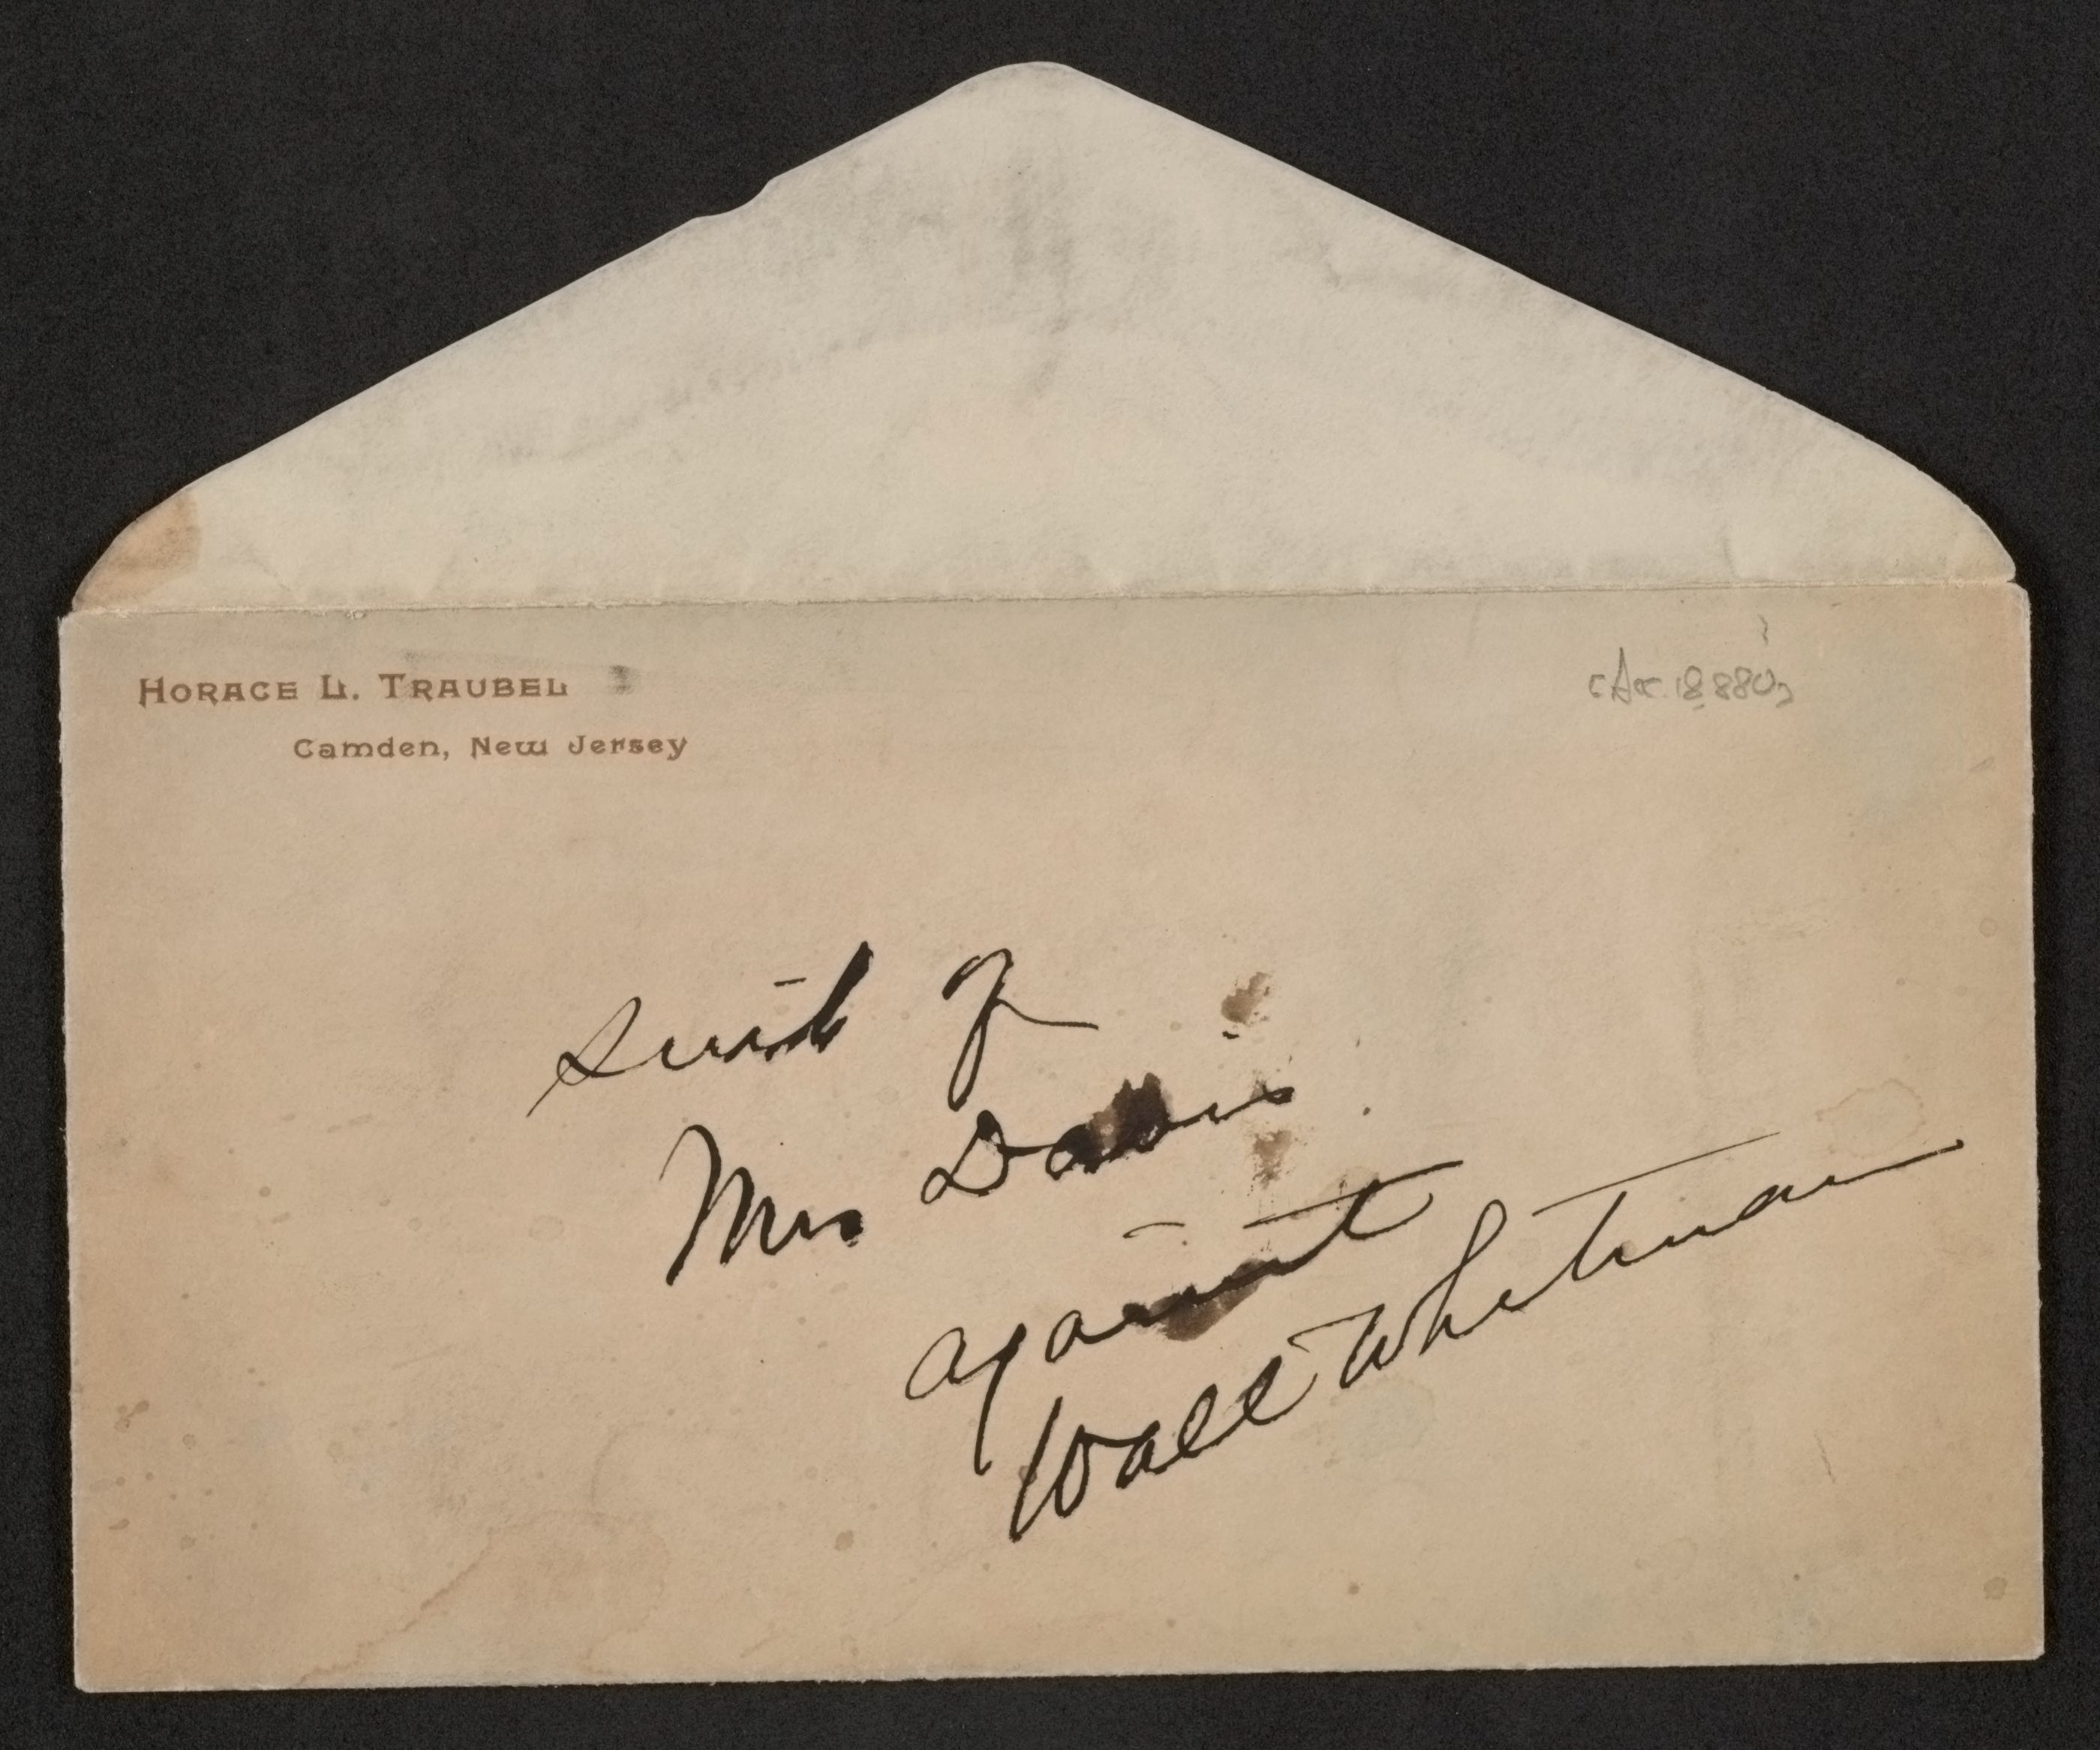 HORACE L. TRAUBEL
Camden, New Jersey
[Acc. 18,880]
Suit of
Mrs Davis
against
Walt Whitman